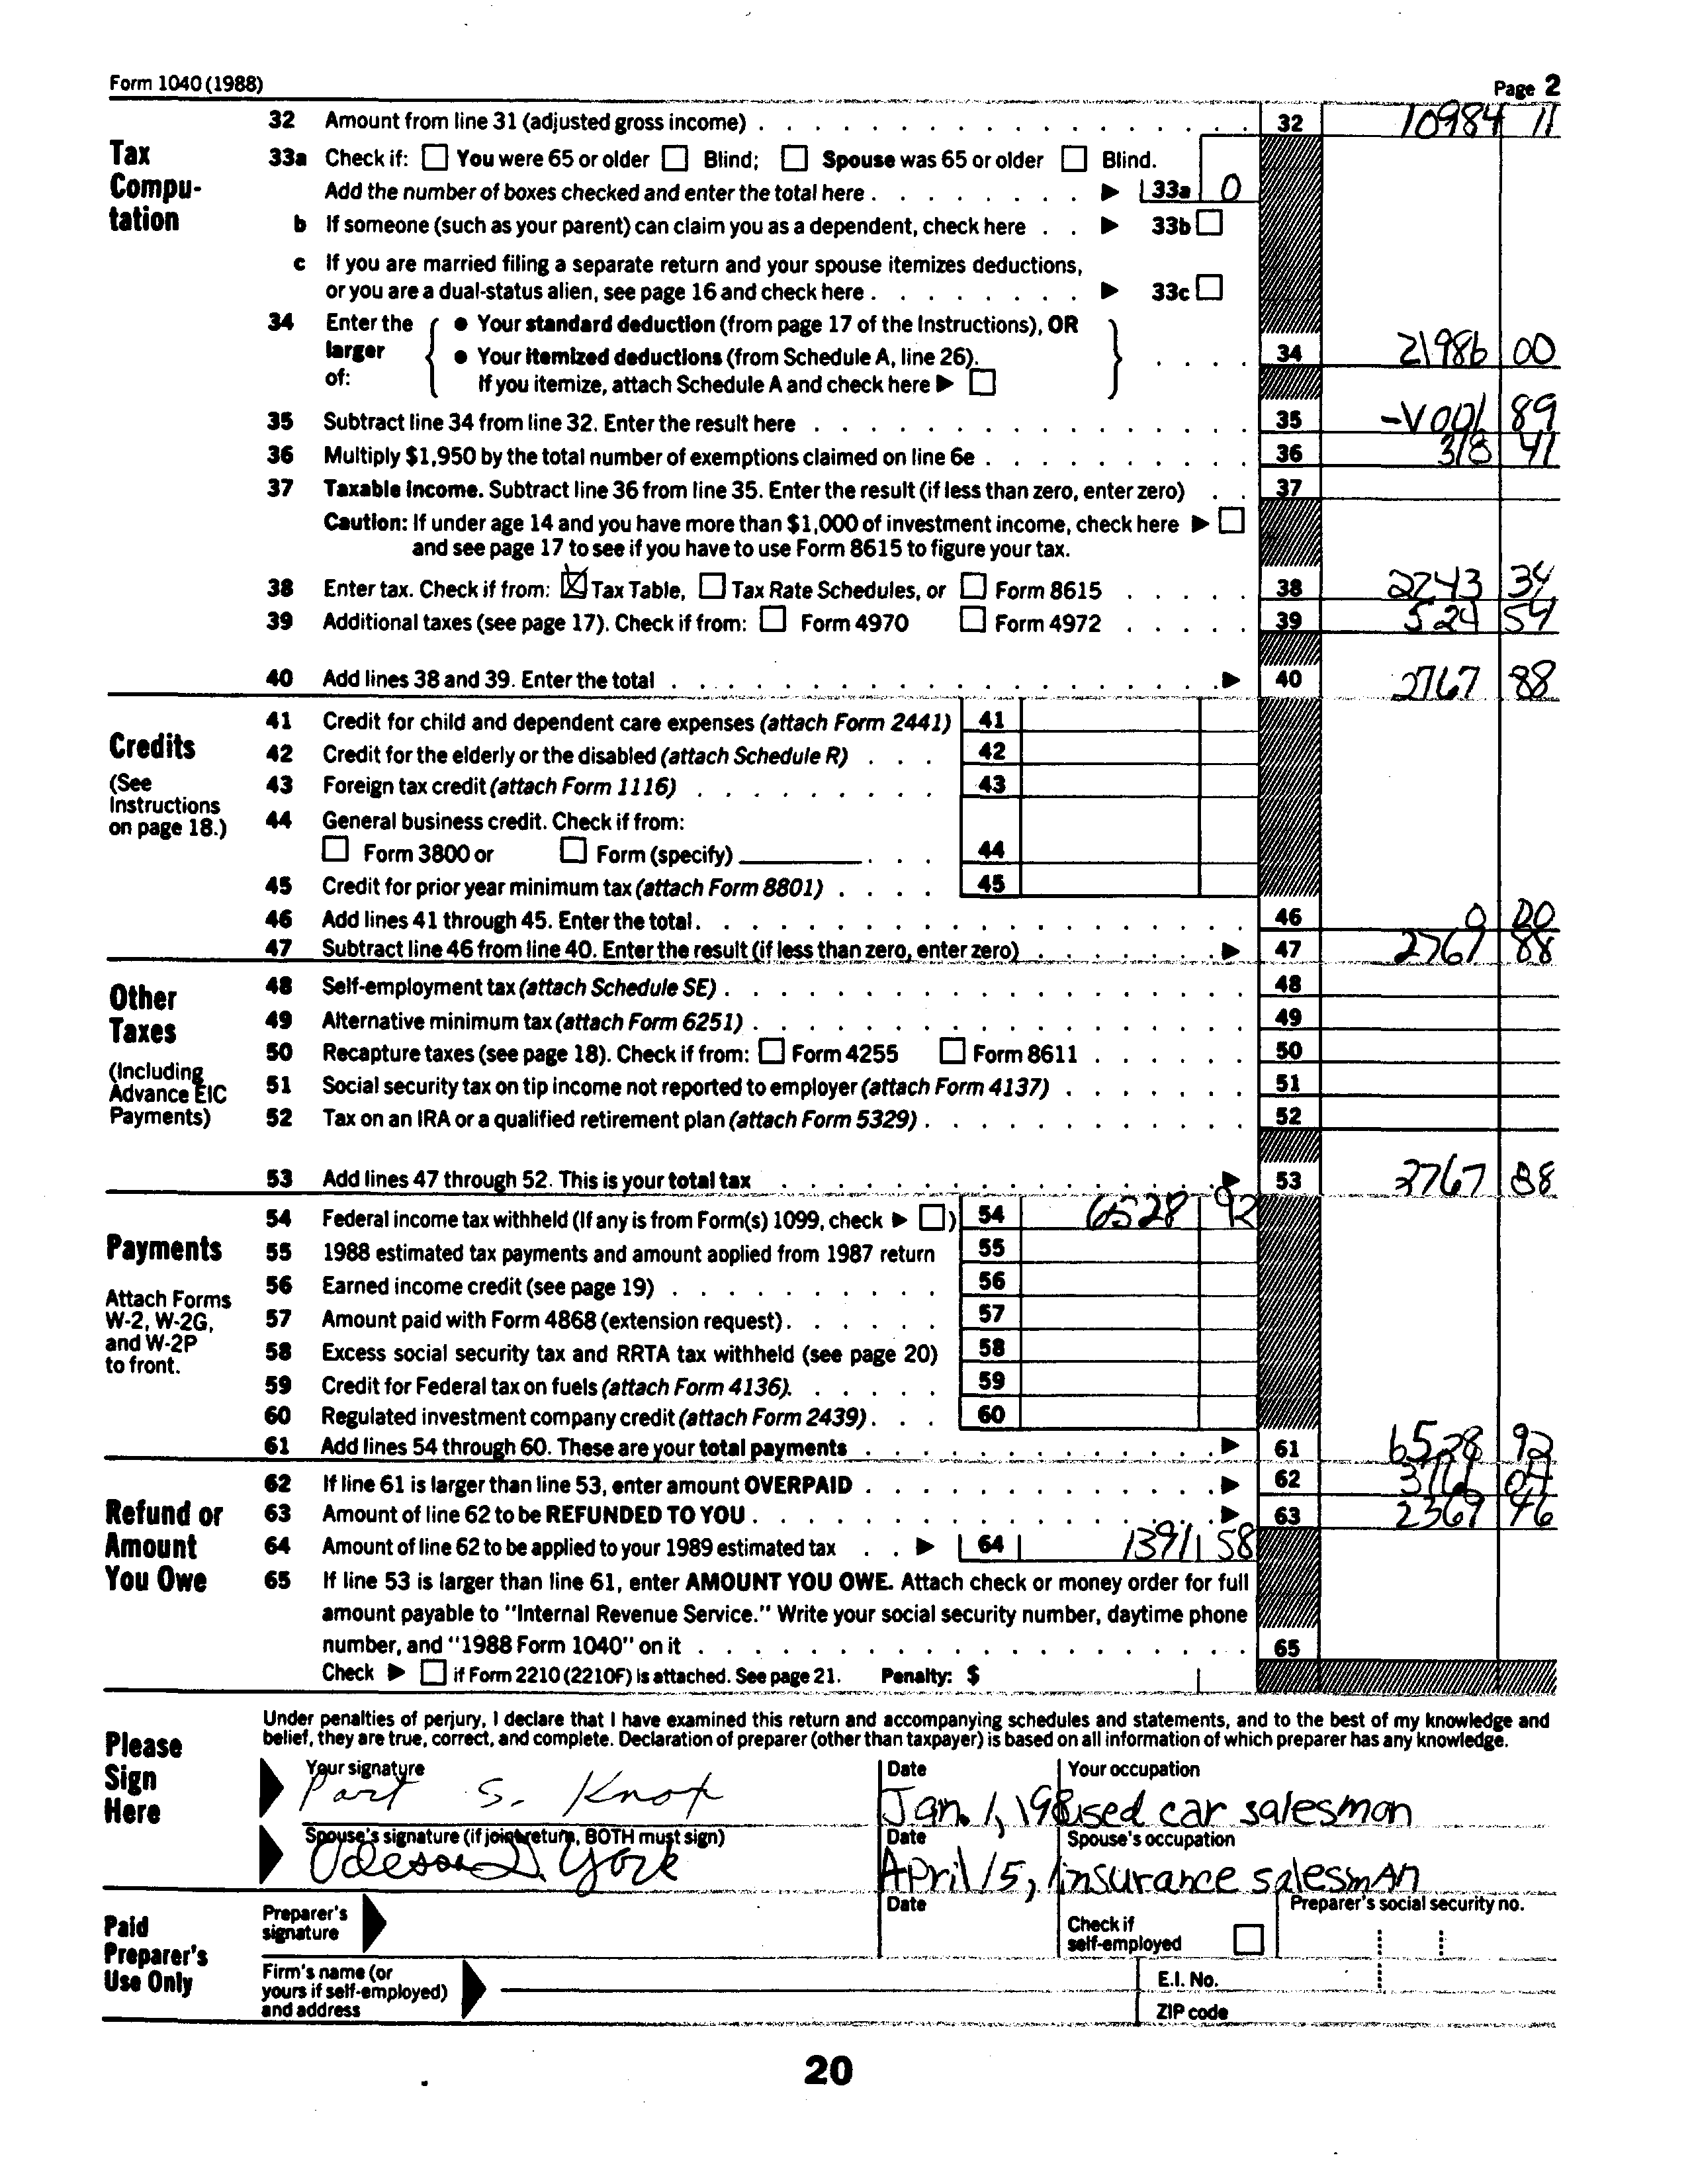 Form 1040 (1988) Page 2
Tax Compu-tation
32 Amount from line 31 (adjusted gross income) 32 10984 11
33a Check if: You were 65 or older Blind; Spouse was 65 or older Blind.
Add the number of boxes checked and enter the total here 33a 0
b If someone (such as your parent) can claim you as a dependent, check here 33b
c If you are married filing a separate return and your spouse itemizes deductions,
or you are a dual-status alien, see page 16 and check here 33c
34 Enter the larger of: { • Your standard deduction (from page 17 of the Instructions), OR
• Your itemized deductions (from Schedule A, line 26).
If you itemize, attach Schedule A and check here } 34 21986 00
35 Subtract line 34 from line 32. Enter the result here 35 89
36 Multiply $1,950 by the total number of exemptions claimed on line 6e 36 318 41
37 Taxable Income. Subtract line 36 from line 35. Enter the result (if less than zero, enter zero) 37
Caution: If under age 14 and you have more than $1,000 of investment income, check here
and see page 17 to see if you have to use Form 8615 to figure your tax.
38 Enter tax. Check if from: Tax Table, Tax Rate Schedules, or Form 8615 38 2243 34
39 Additional taxes (see page 17). Check if from: Form 4970 Form 4972 39 524 54
40 Add lines 38 and 39. Enter the total 40 2767 88
Credits
(See Instructions on page 18.)
41 Credit for child and dependent care expenses (attach Form 2441) 41
42 Credit for the elderly or the disabled (attach Schedule R) 42
43 Foreign tax credit (attach Form 1116) 43
44 General business credit. Check if from:
Form 3800 or Form (specify) 44
45 Credit for prior year minimum tax (attach Form 8801) 45
46 Add lines 41 through 45. Enter the total 46 0 00
47 Subtract line 46 from line 40. Enter the result (if less than zero, enter zero) 47 2767 88
Other Taxes
(Including Advance EIC Payments)
48 Self-employment tax (attach Schedule SE) 48
49 Alternative minimum tax (attach Form 6251) 49
50 Recapture taxes (see page 18). Check if from: Form 4255 Form 8611 50
51 Social security tax on tip income not reported to employer (attach Form 4137) 51
52 Tax on an IRA or a qualified retirement plan (attach Form 5329) 52
53 Add lines 47 through 52. This is your total tax 53 2767 88
Payments
Attach Forms W-2, W-2G, and W-2P to front.
54 Federal income tax withheld (If any is from Form(s) 1099, check ) 54 6528 92
55 1988 estimated tax payments and amount applied from 1987 return 55
56 Earned income credit (see page 19) 56
57 Amount paid with Form 4868 (extension request) 57
58 Excess social security tax and RRTA tax withheld (see page 20) 58
59 Credit for Federal tax on fuels (attach Form 4136) 59
60 Regulated investment company credit (attach Form 2439) 60
61 Add lines 54 through 60. These are your total payments 61 6528 92
Refund or Amount You Owe
62 If line 61 is larger than line 53, enter amount OVERPAID 62 3761 04
63 Amount of line 62 to be REFUNDED TO YOU 63 2369 46
64 Amount of line 62 to be applied to your 1989 estimated tax 64 1391 58
65 If line 53 is larger than line 61, enter AMOUNT YOU OWE. Attach check or money order for full
amount payable to "Internal Revenue Service." Write your social security number, daytime phone
number, and "1988 Form 1040" on it 65
Check if Form 2210 (2210F) is attached. See page 21. Penalty: $
Please Sign Here
Under penalties of perjury, I declare that I have examined this return and accompanying schedules and statements, and to the best of my knowledge and
belief, they are true, correct, and complete. Declaration of preparer (other than taxpayer) is based on all information of which preparer has any knowledge.
Your signature Date Your occupation
Part S. Knot Jan. 1, 198 used car salesman
Spouse's signature (if joint return, BOTH must sign) Date Spouse's occupation
Odessa D. York April 15, insurance salesman
Paid Preparer's Use Only
Preparer's signature Date Check if self-employed Preparer's social security no.
Firm's name (or yours if self-employed) and address E.I. No.
ZIP code
20